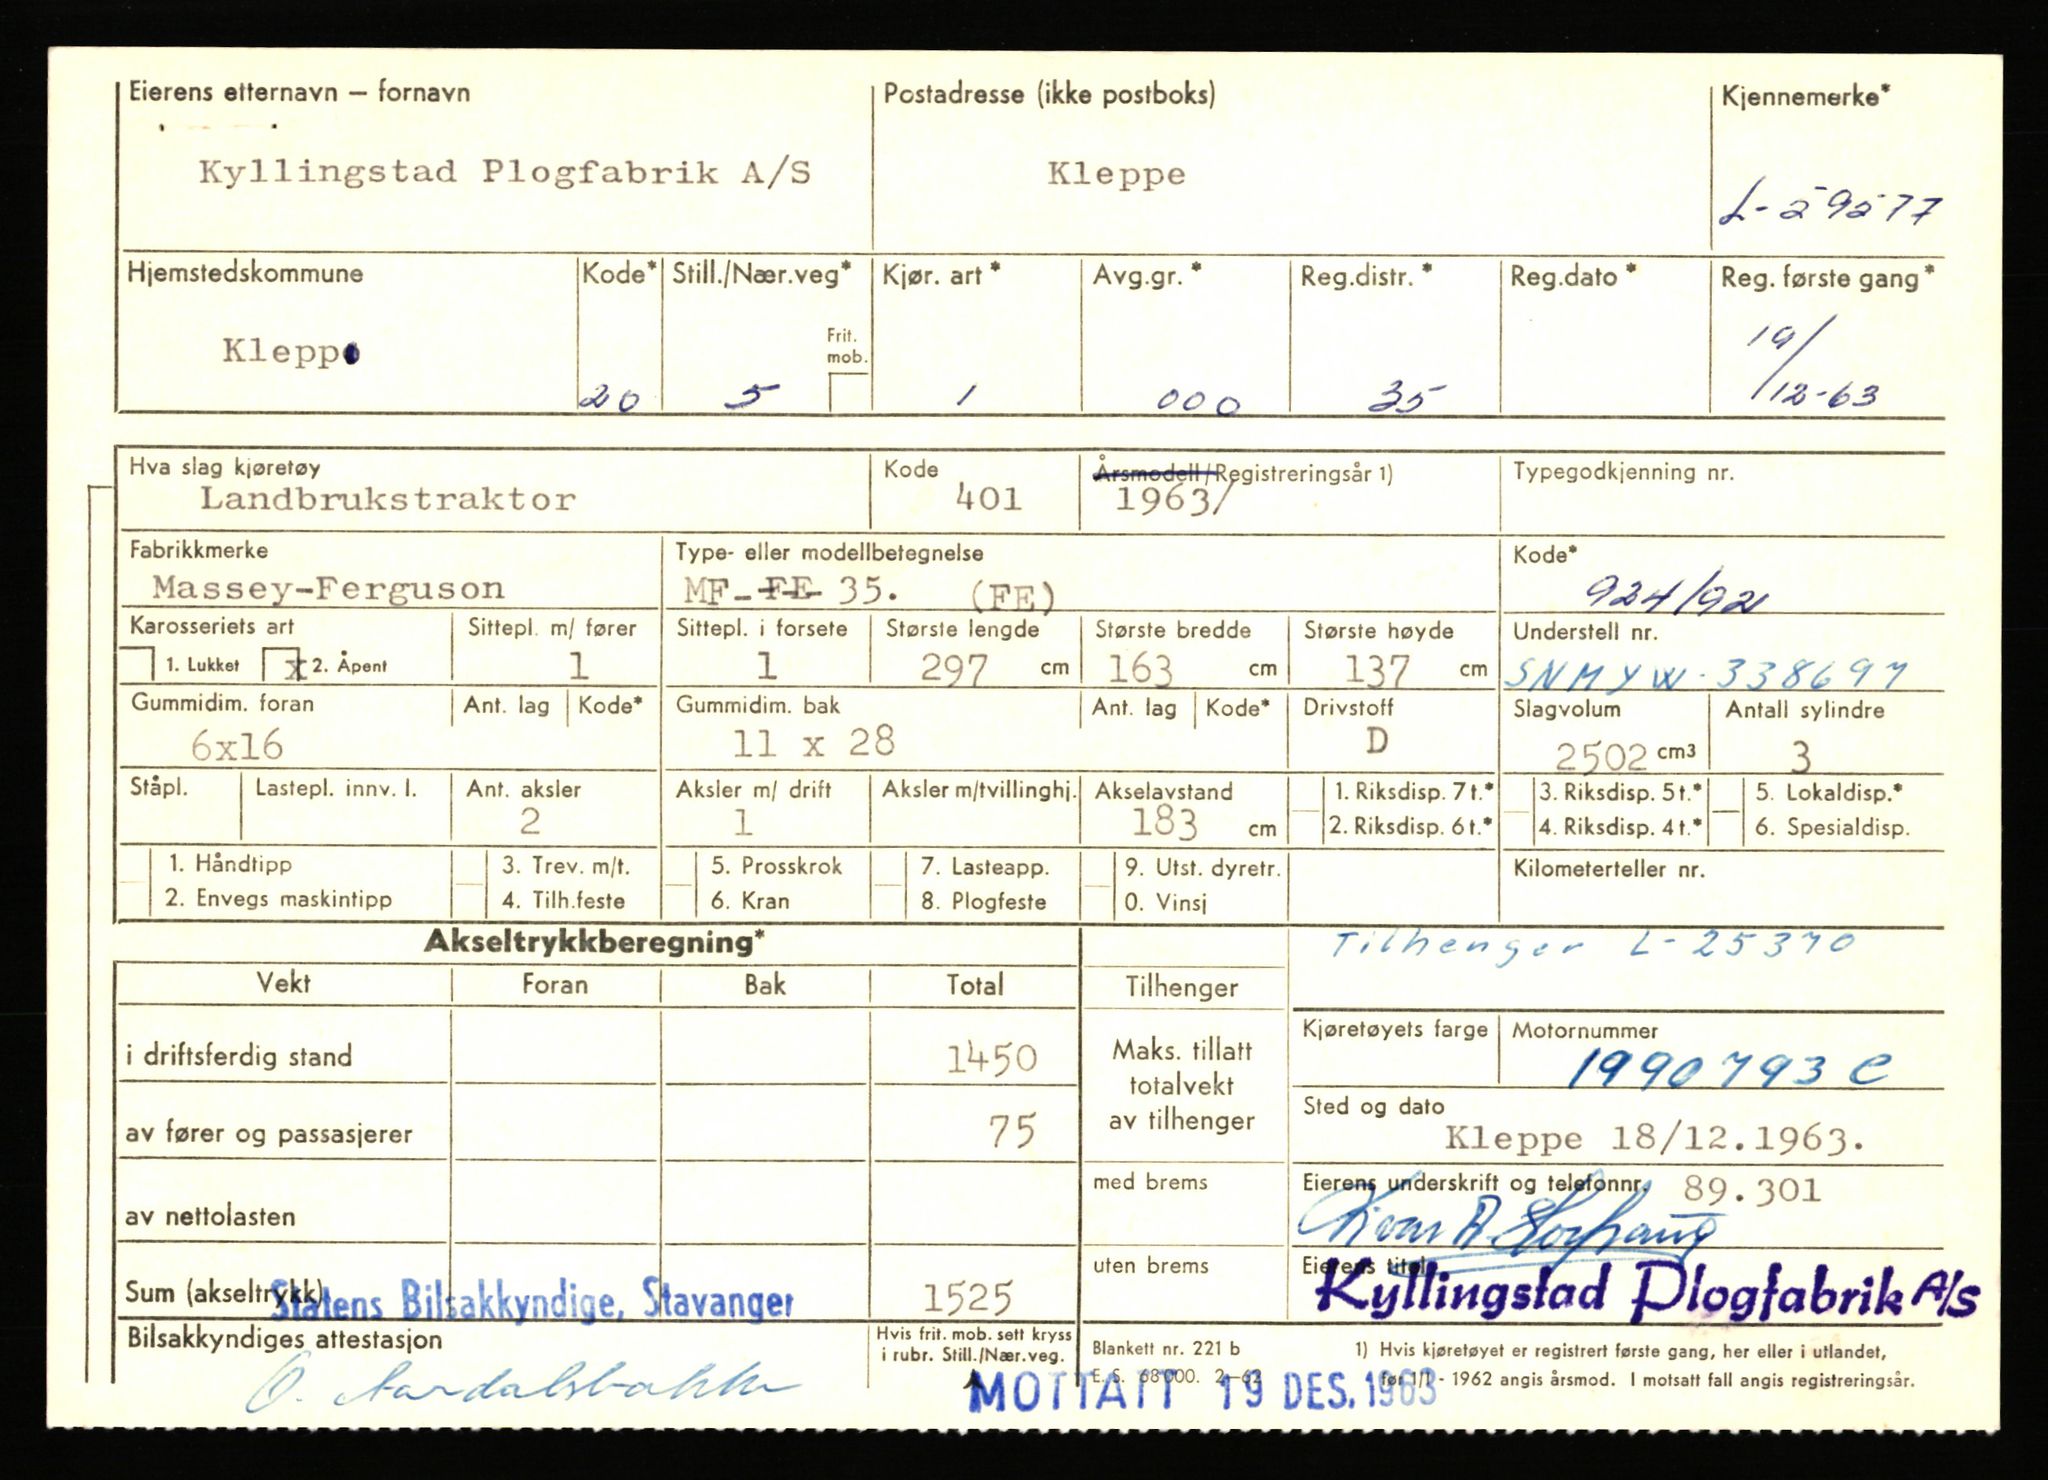 Eierens etternavn – fornavn Postadresse (ikke postboks) Kjennemerke*
Kyllingstad Plogfabrik A/S Kleppe
L-59577
Hjemstedskommune Kode* Still./Nær.veg* Kjør. art* Avg.gr.* Reg.distr.* Reg.dato* Reg. første gang*
Frit.
mob.
Kleppe 20 5 1 000 35 19/12-63
Hva slag kjøretøy Kode Årsmodell/Registreringsår 1) Typegodkjenning nr.
Landbrukstraktor 401 1963/
Fabrikkmerke Type- eller modellbetegnelse Kode*
Massey-Ferguson MF-FE 35. (FE) 924/92
Karosseriets art Sittepl. m/ fører Sittepl. i forsete Største lengde Største bredde Største høyde Understell nr.
1. Lukket x 2. Åpent 1 1 297 cm 163 cm 137 cm SNMYW-338697
Gummidim. foran Ant. lag Kode* Gummidim. bak Ant. lag Kode* Drivstoff Slagvolum Antall sylindre
6x16 11 x 28 D 2502 cm3 3
Ståpl. Lastepl. innv. l. Ant. aksler Aksler m/ drift Aksler m/tvillinghj. Akselavstand 1. Riksdisp. 7 t.* 3. Riksdisp. 5 t.* 5. Lokaldisp.*
2 1 183 cm 2. Riksdisp. 6 t.* 4. Riksdisp. 4 t.* 6. Spesialdisp.
1. Håndtipp 3. Trev. m/t. 5. Prosskrok 7. Lasteapp. 9. Utst. dyretr. Kilometerteller nr.
2. Envegs maskintipp 4. Tilh.feste 6. Kran 8. Plogfeste 0. Vinsj
Akseltrykkberegning* Tilhenger L-25370
Vekt Foran Bak Total Tilhenger
Kjøretøyets farge Motornummer
i driftsferdig stand 1450 Maks. tillatt
totalvekt
av tilhenger
1990793 C
Sted og dato
av fører og passasjerer 75 Kleppe 18/12.1963.
med brems Eierens underskrift og telefonnr. 89.301
av nettolasten
uten brems Eierens titel
Sum (akseltrykk) 1525 Kyllingstad Plogfabrik A/S
Statens Bilsakkyndige, Stavanger
Bilsakkyndiges attestasjon Hvis frit. mob. sett kryss
i rubr. Still./Nær.veg.
Blankett nr. 221 b 1) Hvis kjøretøyet er registrert første gang, her eller i utlandet,
E. S. 68 000. 2–62 før 1/1 - 1962 angis årsmod. I motsatt fall angis registreringsår.
O. Aardalsbakke
MOTTATT 19 DES. 1963